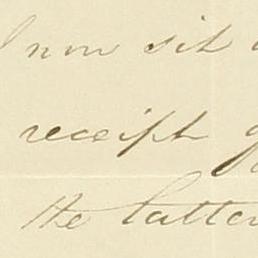 I now sit
receipt
the latter